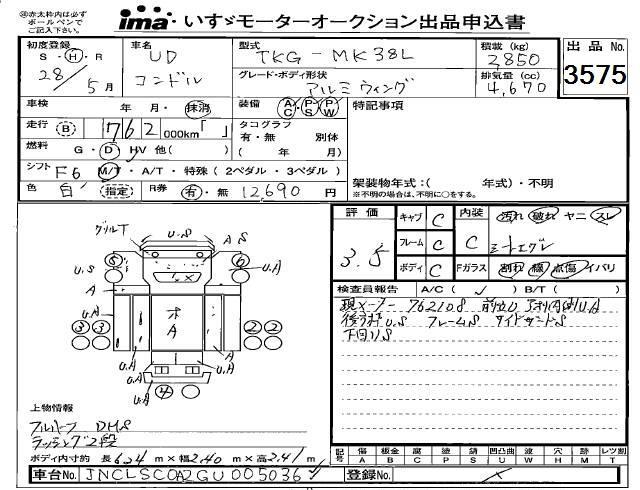 ㊟赤太枠内は必ず
ボールペンで
ご記入下さい。
ima いすゞモーターオークション出品申込書
初度登録 S・H・R 28/5月
車名 UD コンドル
型式 TKG-MK38L
グレード・ボディ形状 アルミウィング
積載(kg) 2850
排気量(cc) 4,670
出品No. 3575
車検 年・月・抹消
装備 AC・PS・PW
特記事項
走行 (B) 762 000km「 」
タコグラフ 有・無 別体
( 年 月)
燃料 G・D HV 他( )
シフト F6 M/T・A/T・特殊(2ペダル・3ペダル)
架装物年式:( 年式)・不明
※不明の場合は、不明に○をする。
色 白 (指定) R券 有・無 12,690 円
評価 3.5
キャブ C 内装 C 汚れ 破れ ヤニ スレ
フレーム C シートエグレ
ボディ C Fガラス 割れ 線 点傷 イバリ
グリルT U.S A S
⑤ ⑥
U.S U.A
A A
ホ
A
U.A U.A
③③ ②②
A A
U.A U.A
④
U.A
検査員報告 A/C( ✓ ) B/T( )
現メーター 762108
後 U.S フレームS サイドガードS
下回りS
上物情報
フルハーフ DHS
ラッシング2段
ボディ内寸約 長 624 m×幅 2.40 m×高 2.41 m
記号 傷 A 板金 B 腐 C 塗 P 錆 S 凹凸曲 U 波 W 穴 H 跡 M レツ割 T
車台No. JNCLSC0A2GU005036 ✓ 登録No.